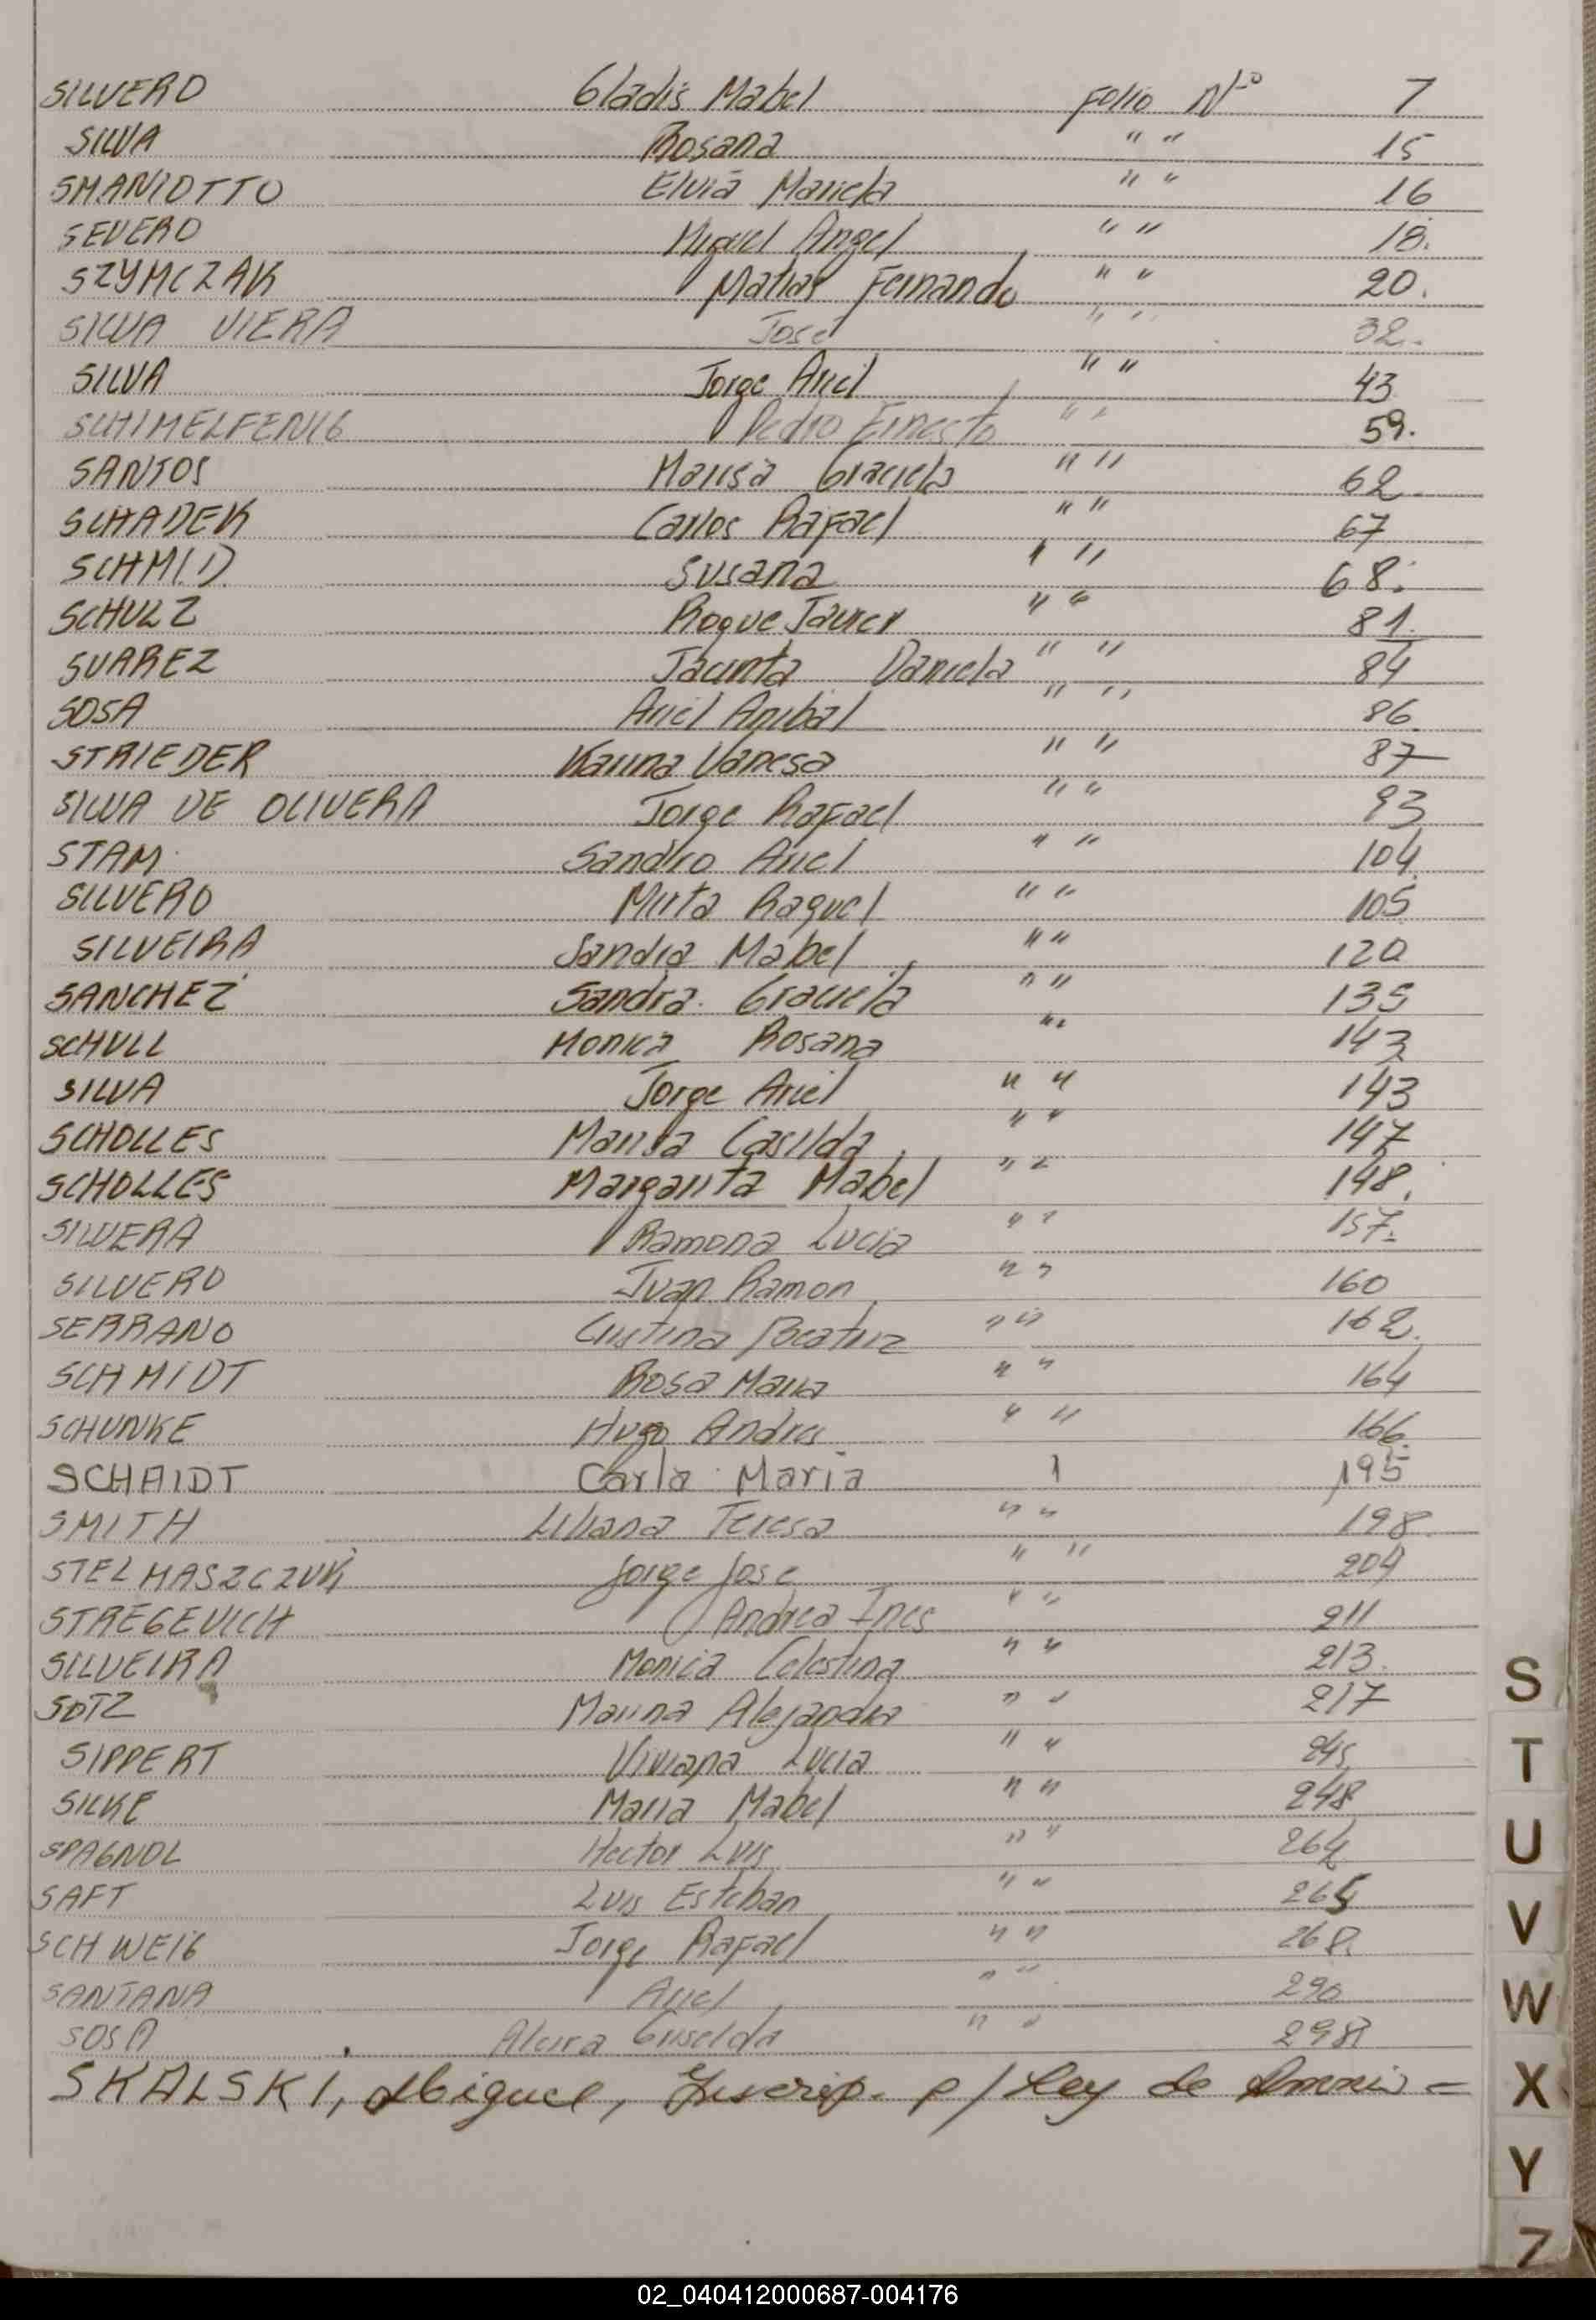 SILVERO Gladis Mabel Folio Nº 7
SILVA Rosana " " 15
SMANIOTTO Elvia Mariela " " 16
SEVERO Miguel Angel " " 18.
SZYMCZAK Matias Fernando " " 20.
SILVA VIERA José " " 32.
SILVA Jorge Ariel " " 43
SCHIMELFENIG Pedro Ernesto " " 59.
SANTOS Marisa Graciela " " 62
SCHADEK Carlos Rafael " " 67
SCHMID Susana " " 68.
SCHULZ Roque Javier " " 81.
SUAREZ Jacinta Daniela " " 84
SOSA Ariel Anibal " " 86
STRIEDER Karina Vanesa " " 87
SILVA DE OLIVERA Jorge Rafael " " 93
STAM Sandro Ariel " " 104
SILVERO Mirta Raquel " " 105
SILVEIRA Sandra Mabel " " 120
SANCHEZ Sandra Graciela " " 135
SCHULL Monica Rosana " " 143
SILVA Jorge Ariel " " 143
SCHOLLES Marisa Casilda " " 147
SCHOLLES Margarita Mabel " " 148.
SILVERA Ramona Lucia " " 157.
SILVERO Juan Ramon " " 160
SERRANO Cristina Beatriz " " 162.
SCHMIDT Rosa Maria " " 164
SCHUNKE Hugo Andres " " 166.
SCHAIDT Carla Maria 195
SMITH Liliana Teresa " " 198.
STELMASZCZUK Jorge Jose " " 204
STREGEVICH Andrea Ines " " 211
SILVEIRA Monica Celestina " " 213.
SOTZ Marina Alejandra " " 217
SIPPERT Viviana Lucia " " 245
SILKE Maria Mabel " " 248
SPAGNOL Hector Luis " " 264
SAFT Luis Esteban " " 265
SCHWEIG Jorge Rafael " " 268
SANTANA Ariel " " 290
SOSA Alcira Griselda " " 298
SKALSKI, Miguel, Inscrip. p/ Ley de Amnis =
S
T
U
V
W
X
Y
Z
02_040412000687-004176